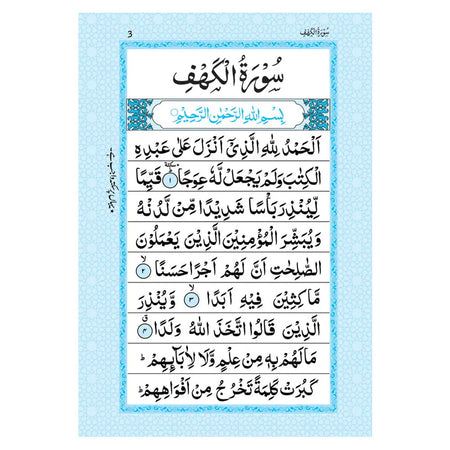 سُوْرَةُ الْكَهْفِ
3
سُوْرَةُ الْكَهْفِ
بِسْمِ اللهِ الرَّحْمٰنِ الرَّحِيْمِ
اَلْحَمْدُ لِلّٰهِ الَّذِيْٓ اَنْزَلَ عَلٰى عَبْدِهِ
الْكِتٰبَ وَلَمْ يَجْعَلْ لَّهٗ عِوَجًا ۱ قَيِّمًا
لِّيُنْذِرَ بَاْسًا شَدِيْدًا مِّنْ لَّدُنْهُ
وَيُبَشِّرَ الْمُؤْمِنِيْنَ الَّذِيْنَ يَعْمَلُوْنَ
الصّٰلِحٰتِ اَنَّ لَهُمْ اَجْرًا حَسَنًا ۲
مَّاكِثِيْنَ فِيْهِ اَبَدًا ۳ وَّيُنْذِرَ
الَّذِيْنَ قَالُوا اتَّخَذَ اللهُ وَلَدًا ۴
مَا لَهُمْ بِهٖ مِنْ عِلْمٍ وَّلَا لِاٰبَآئِهِمْ ط
كَبُرَتْ كَلِمَةً تَخْرُجُ مِنْ اَفْوَاهِهِمْ ط